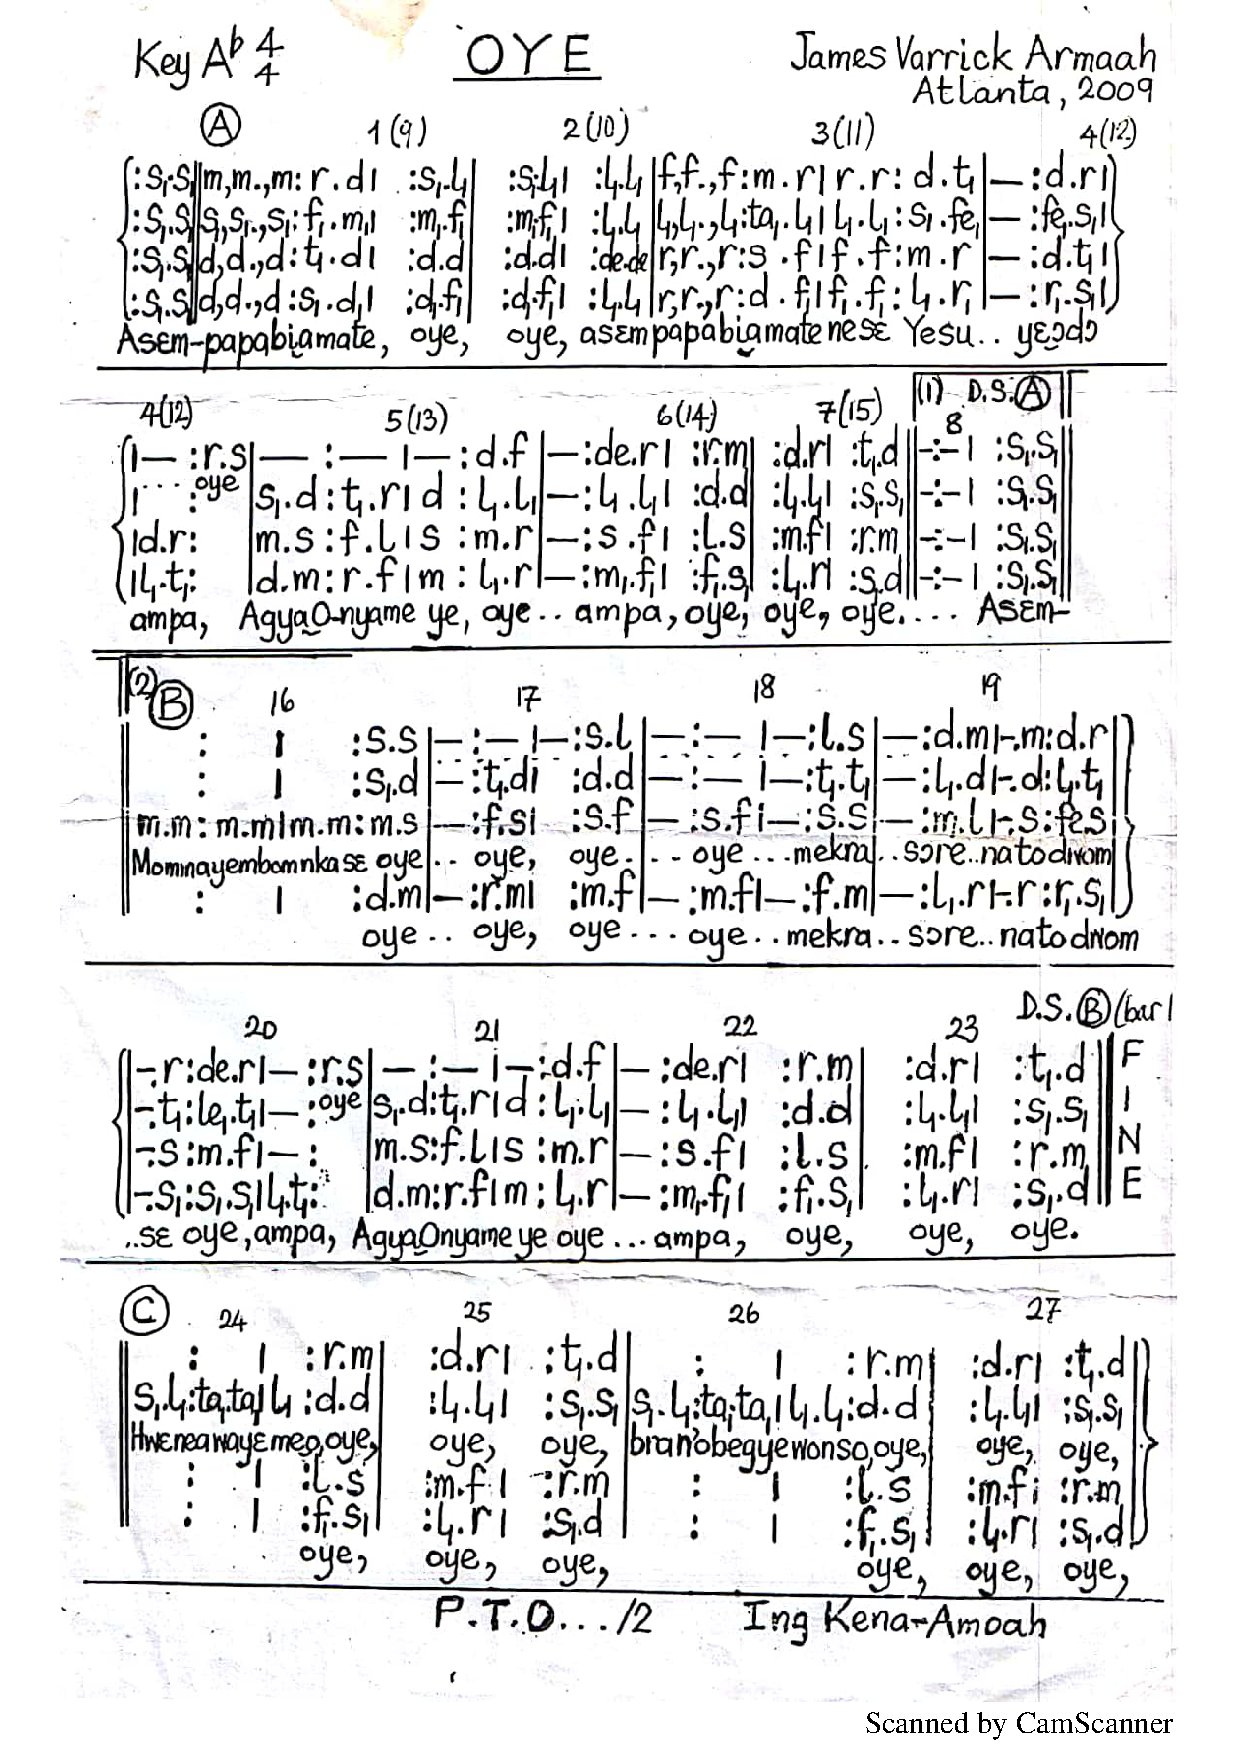 Key A♭ 4/4 OYE James Varrick Armaah
Atlanta, 2009
A 1(9) 2(10) 3(11) 4(12)
:s₁.s₁||m,m.,m: r.d| :s₁.l₁| :s₁.l₁| :l₁.l₁|f,f.,f:m.r| r.r: d.t₁|— :d.r|
:s₁.s₁||s₁,s₁.,s₁:f₁.m₁| :m₁.f₁| :m₁.f₁| :l₁.l₁|l₁,l₁.,l₁:ta₁.l₁| l₁.l₁:s₁.fe₁|— :fe₁.s₁|
:s₁.s₁||d,d.,d:t₁.d| :d.d :d.d| :de.de|r,r.,r:s.f|f.f:m.r|— :d.t₁|
:s₁.s₁||d,d.,d:s₁.d₁| :d₁.f₁| :d₁.f₁| :l₁.l₁|r,r.,r:d.f₁|f₁.f₁:l₁.r₁|— :r₁.s₁|
Asɛm-papabiamate, oye, oye, asɛmpapabiamate nesɛ Yesu.. yɛɔdɔ
4(12) 5(13) 6(14) 7(15) (1) 8 D.S. A
|— :r.s|— :— |— :d.f|— :de.r| :r.m| :d.r| :t₁.d||-:-| :s₁.s₁||
|.... :oye s₁.d:t₁.r|d :l₁.l₁|— :l₁.l₁| :d.d| :l₁.l₁| :s₁.s₁||-:-| :s₁.s₁||
|d.r: |m.s:f.l|s :m.r|— :s.f| :l.s| :m.f| :r.m||-:-| :s₁.s₁||
|l₁.t₁: |d.m:r.f|m :l₁.r|— :m₁.f₁| :f₁.s₁| :l₁.r| :s₁.d||-:-| :s₁.s₁||
ampa, AgyaO-nyame ye, oye.. ampa, oye, oye, oye.... Asɛm-
(2) B 16 17 18 19
: | :s.s|— :— |— :s.l|— :— |— :l.s|— :d.m|-.m:d.r|
: | :s₁.d|— :t₁.d| :d.d|— :— |— :t₁.t₁|— :l₁.d|-.d:l₁.t₁|
m.m: m.m|m.m: m.s|— :f.s| :s.f|— :s.f|— :s.s|— :m.l|-.s:fe.s|
Mominayembomnkasɛ oye.. oye, oye... oye... mekra.. sɔre..natodwom
: | :d.m|— :r.m| :m.f|— :m.f|— :f.m|— :l₁.r|-.r:r₁.s₁|
oye.. oye, oye... oye.. mekra.. sɔre..natodwom
20 21 22 23 D.S. B (bar 1
-.r:de.r|— :r.s|— :— |— :d.f|— :de.r| :r.m| :d.r| :t₁.d|| F
-.t₁:le₁.t₁|— :oye s₁.d:t₁.r|d :l₁.l₁|— :l₁.l₁| :d.d :l₁.l₁| :s₁.s₁|| I
-.s:m.f|— : |m.s:f.l|s :m.r|— :s.f| :l.s| :m.f| :r.m|| N
-.s₁:s₁.s₁|l₁.t₁: |d.m:r.f|m :l₁.r|— :m₁.f₁| :f₁.s₁| :l₁.r| :s₁.d|| E
..sɛ oye, ampa, AgyaOnyame ye oye... ampa, oye, oye, oye.
C 24 25 26 27
: | :r.m| :d.r| :t₁.d| : | :r.m| :d.r| :t₁.d|
s₁.l₁:ta₁.ta₁|l₁ :d.d :l₁.l₁| :s₁.s₁|s₁.l₁:ta₁.ta₁|l₁.l₁:d.d :l₁.l₁| :s₁.s₁
Hwɛneawayɛmeo, oye, oye, oye, bran'obegyewonso, oye, oye, oye,
: | :l.s :m.f| :r.m : | :l.s :m.f| :r.m
: | :f₁.s₁| :l₁.r| :s₁.d : | :f₁.s₁| :l₁.r| :s₁.d
oye, oye, oye, oye, oye, oye,
P.T.O.../2 Ing Kena-Amoah
Scanned by CamScanner